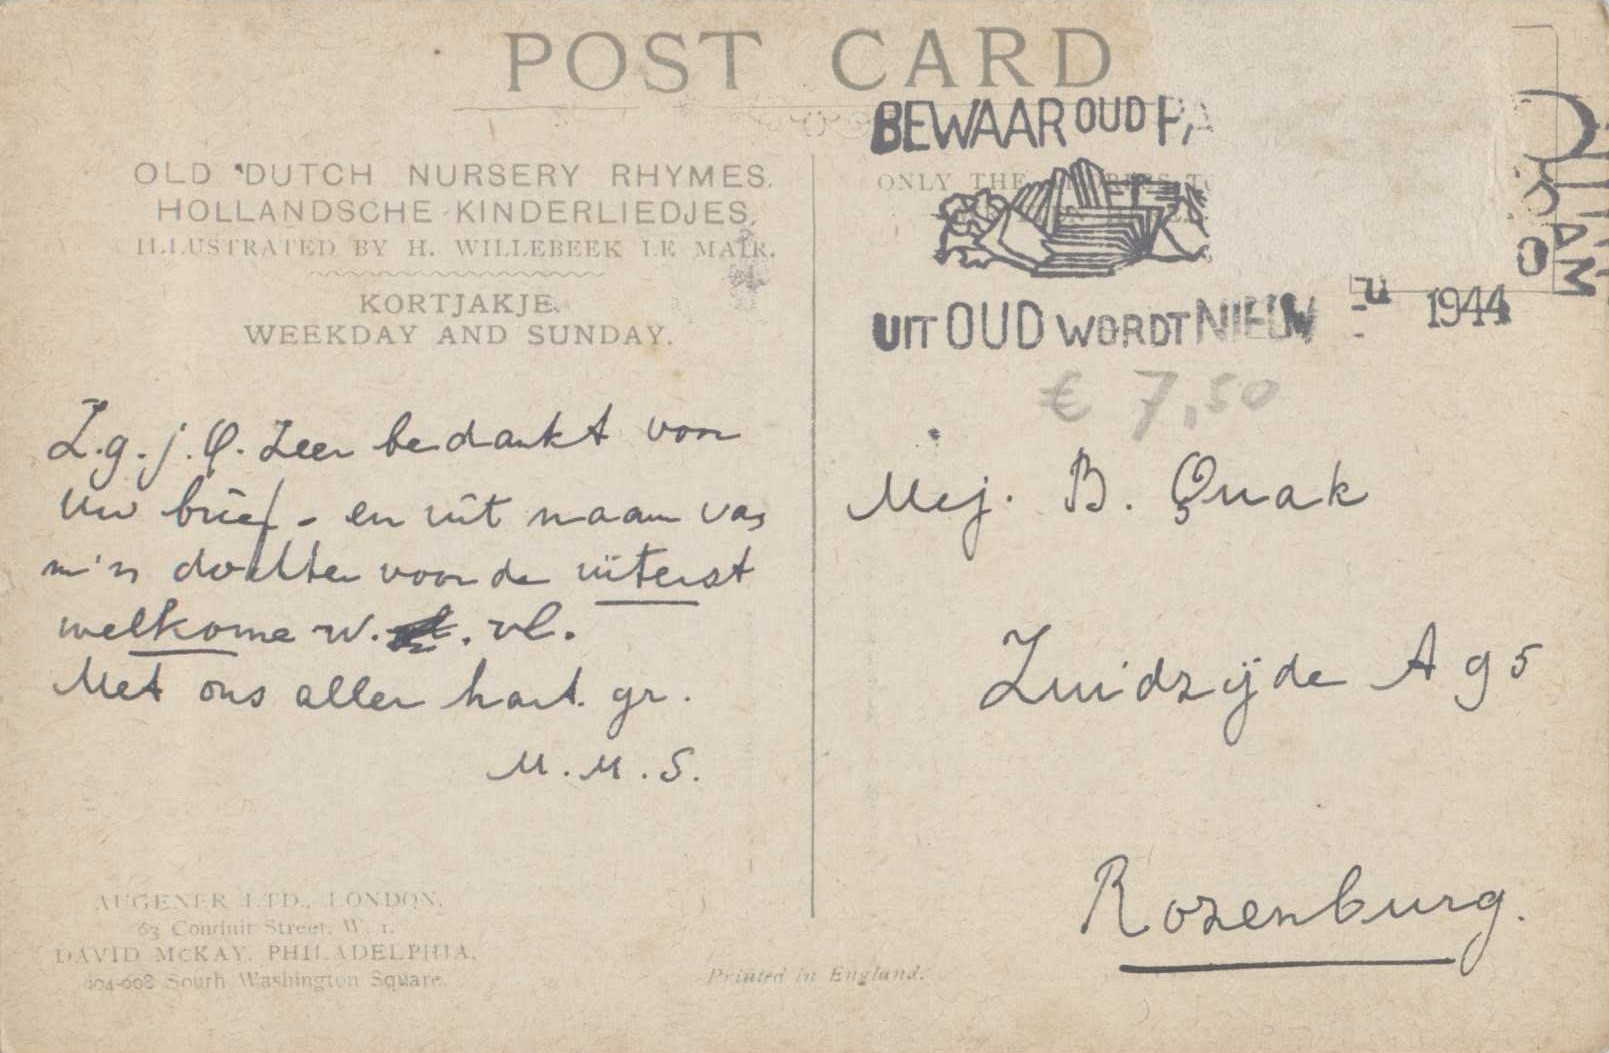 POST CARD
OLD DUTCH NURSERY RHYMES.
HOLLANDSCHE KINDERLIEDJES.
ILLUSTRATED BY H. WILLEBEEK LE MAIR.
KORTJAKJE.
WEEKDAY AND SUNDAY.
Z.g.j.Q. Zeer bedankt voor
Uw brief - en uit naam van
m'n dochter voor de uiterst
welkome w. vl.
Met ons aller hart. gr.
M.M.S.
AUGENER LTD., LONDON.
63 Conduit Street, W. 1.
DAVID McKAY, PHILADELPHIA.
604-608 South Washington Square.
Printed in England.
BEWAAR OUD PA
ONLY THE
UIT OUD WORDT NIEUW
1944
€ 7,50
Mej. B. Quak
Zuidzijde A 95
Rozenburg.